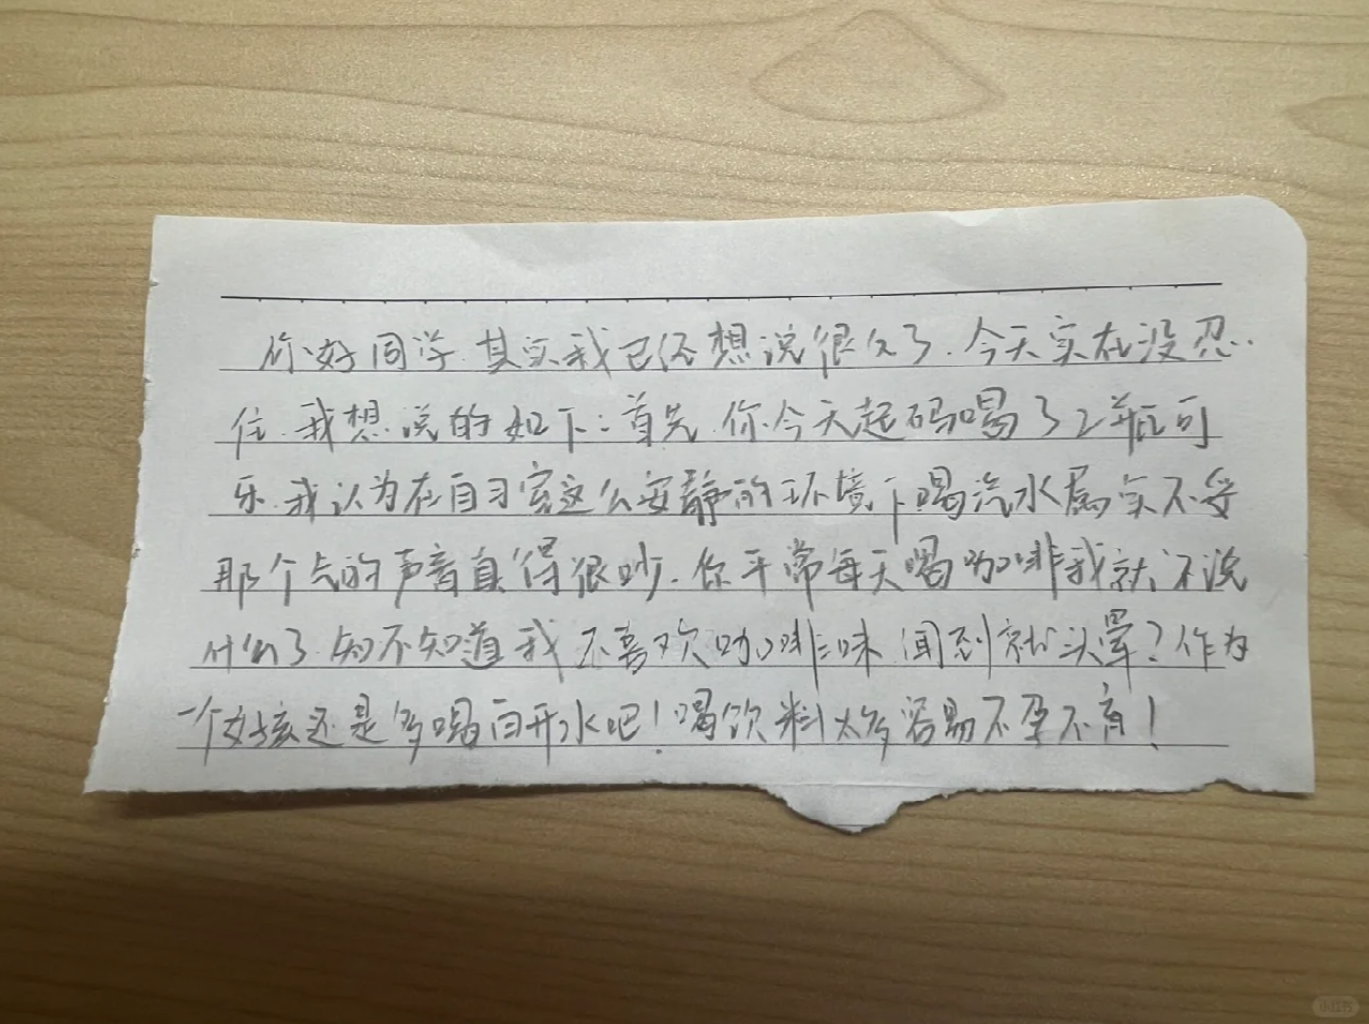 你好同学.其实我已经想说很久了.今天实在没忍
住.我想说的如下:首先.你今天起码喝了2瓶可
乐.我认为在自习室这么安静的环境下喝汽水属实不妥
那个气的声音真得很吵.你平常每天喝咖啡我就不说
什么了.知不知道我不喜欢咖啡味 闻到就头晕?作为
一个女孩还是多喝白开水吧!喝饮料太多容易不孕不育!